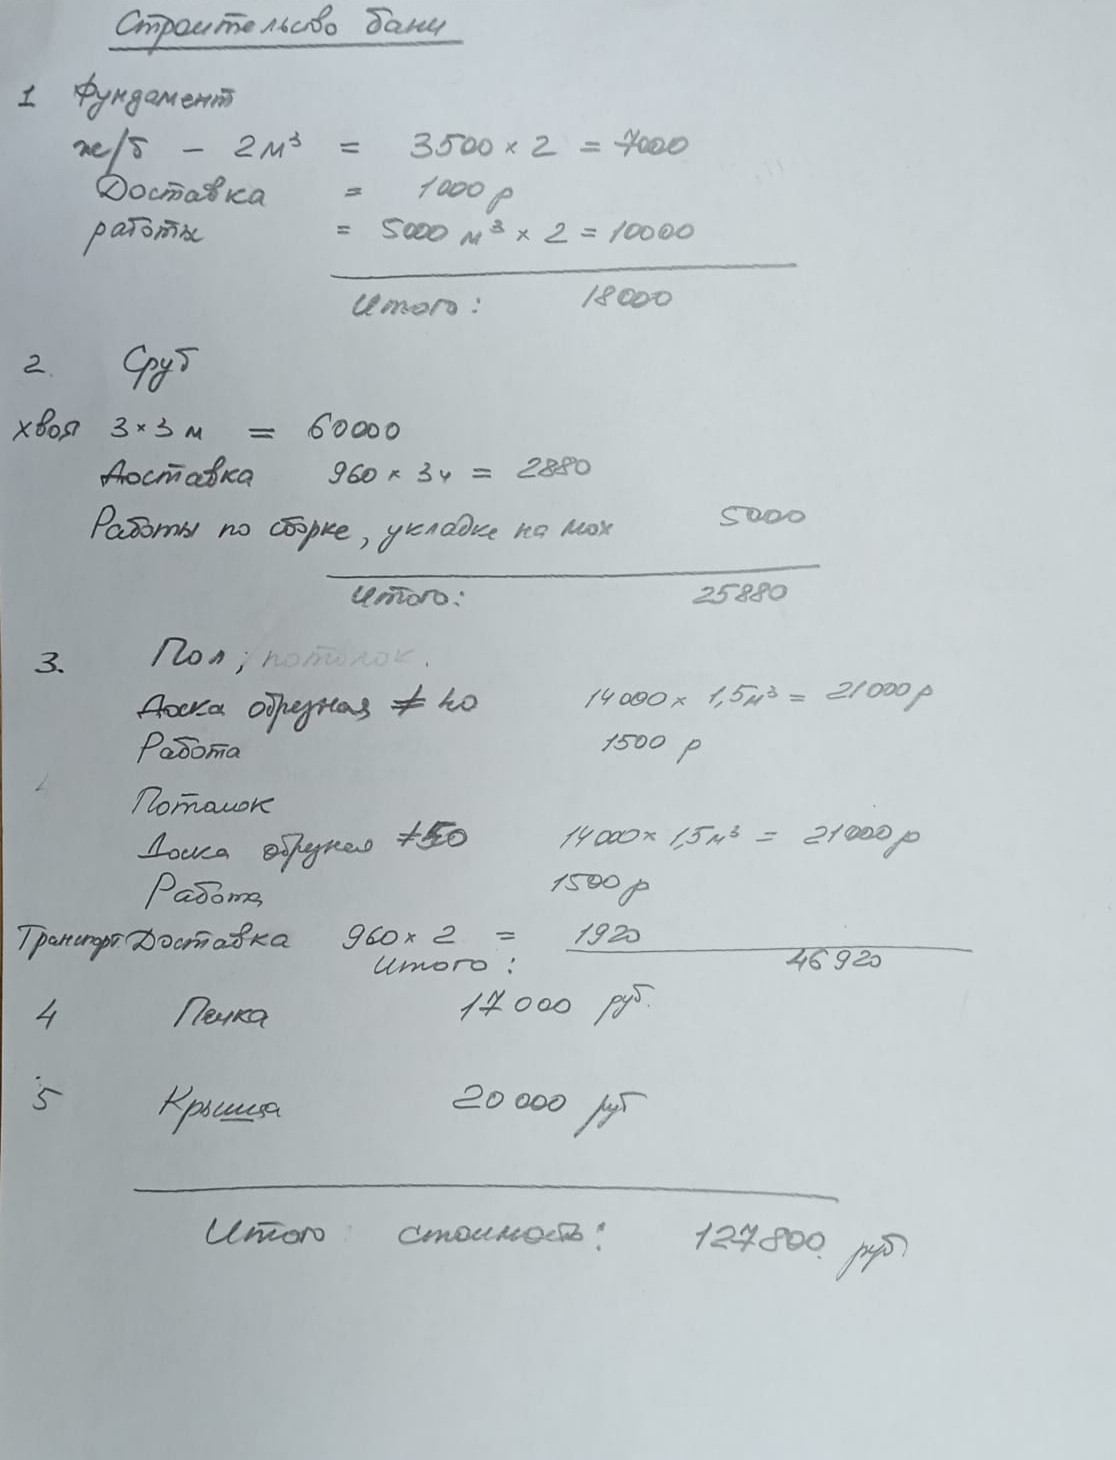 Строительсво бани
1 Фундамент
ж/б - 2м³ = 3500 × 2 = 7000
Доставка = 1000 р
работы = 5000 м³ × 2 = 10000
Итого: 18000
2. Сруб
хвоя 3×3 м = 60000
Доставка 960 × 3ч = 2880
Работы по сборке, укладке на мох 5000
Итого: 25880
3. Пол; потолок.
Доска обрезная ≠ 40 14000 × 1,5м³ = 21000 р
Работа 1500 р
Потолок
Доска обрезная ≠50 14000 × 1,5м³ = 21000 р
Работа 1500 р
Транспорт. Доставка 960 × 2 = 1920
Итого: 46920
4 Печка 17000 руб.
5 Крыша 20 000 руб
Итого стоимость: 127800 руб